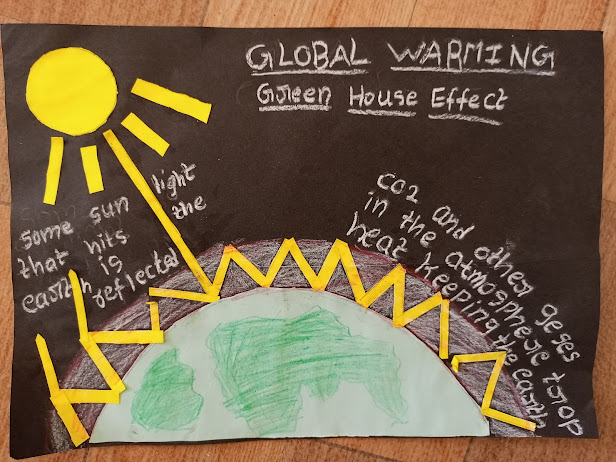 GLOBAL WARMING
Green House Effect
some sun light
that hits the
earth is reflected
CO2 and other geses
in the atmosphere trap
heat keeping the earth